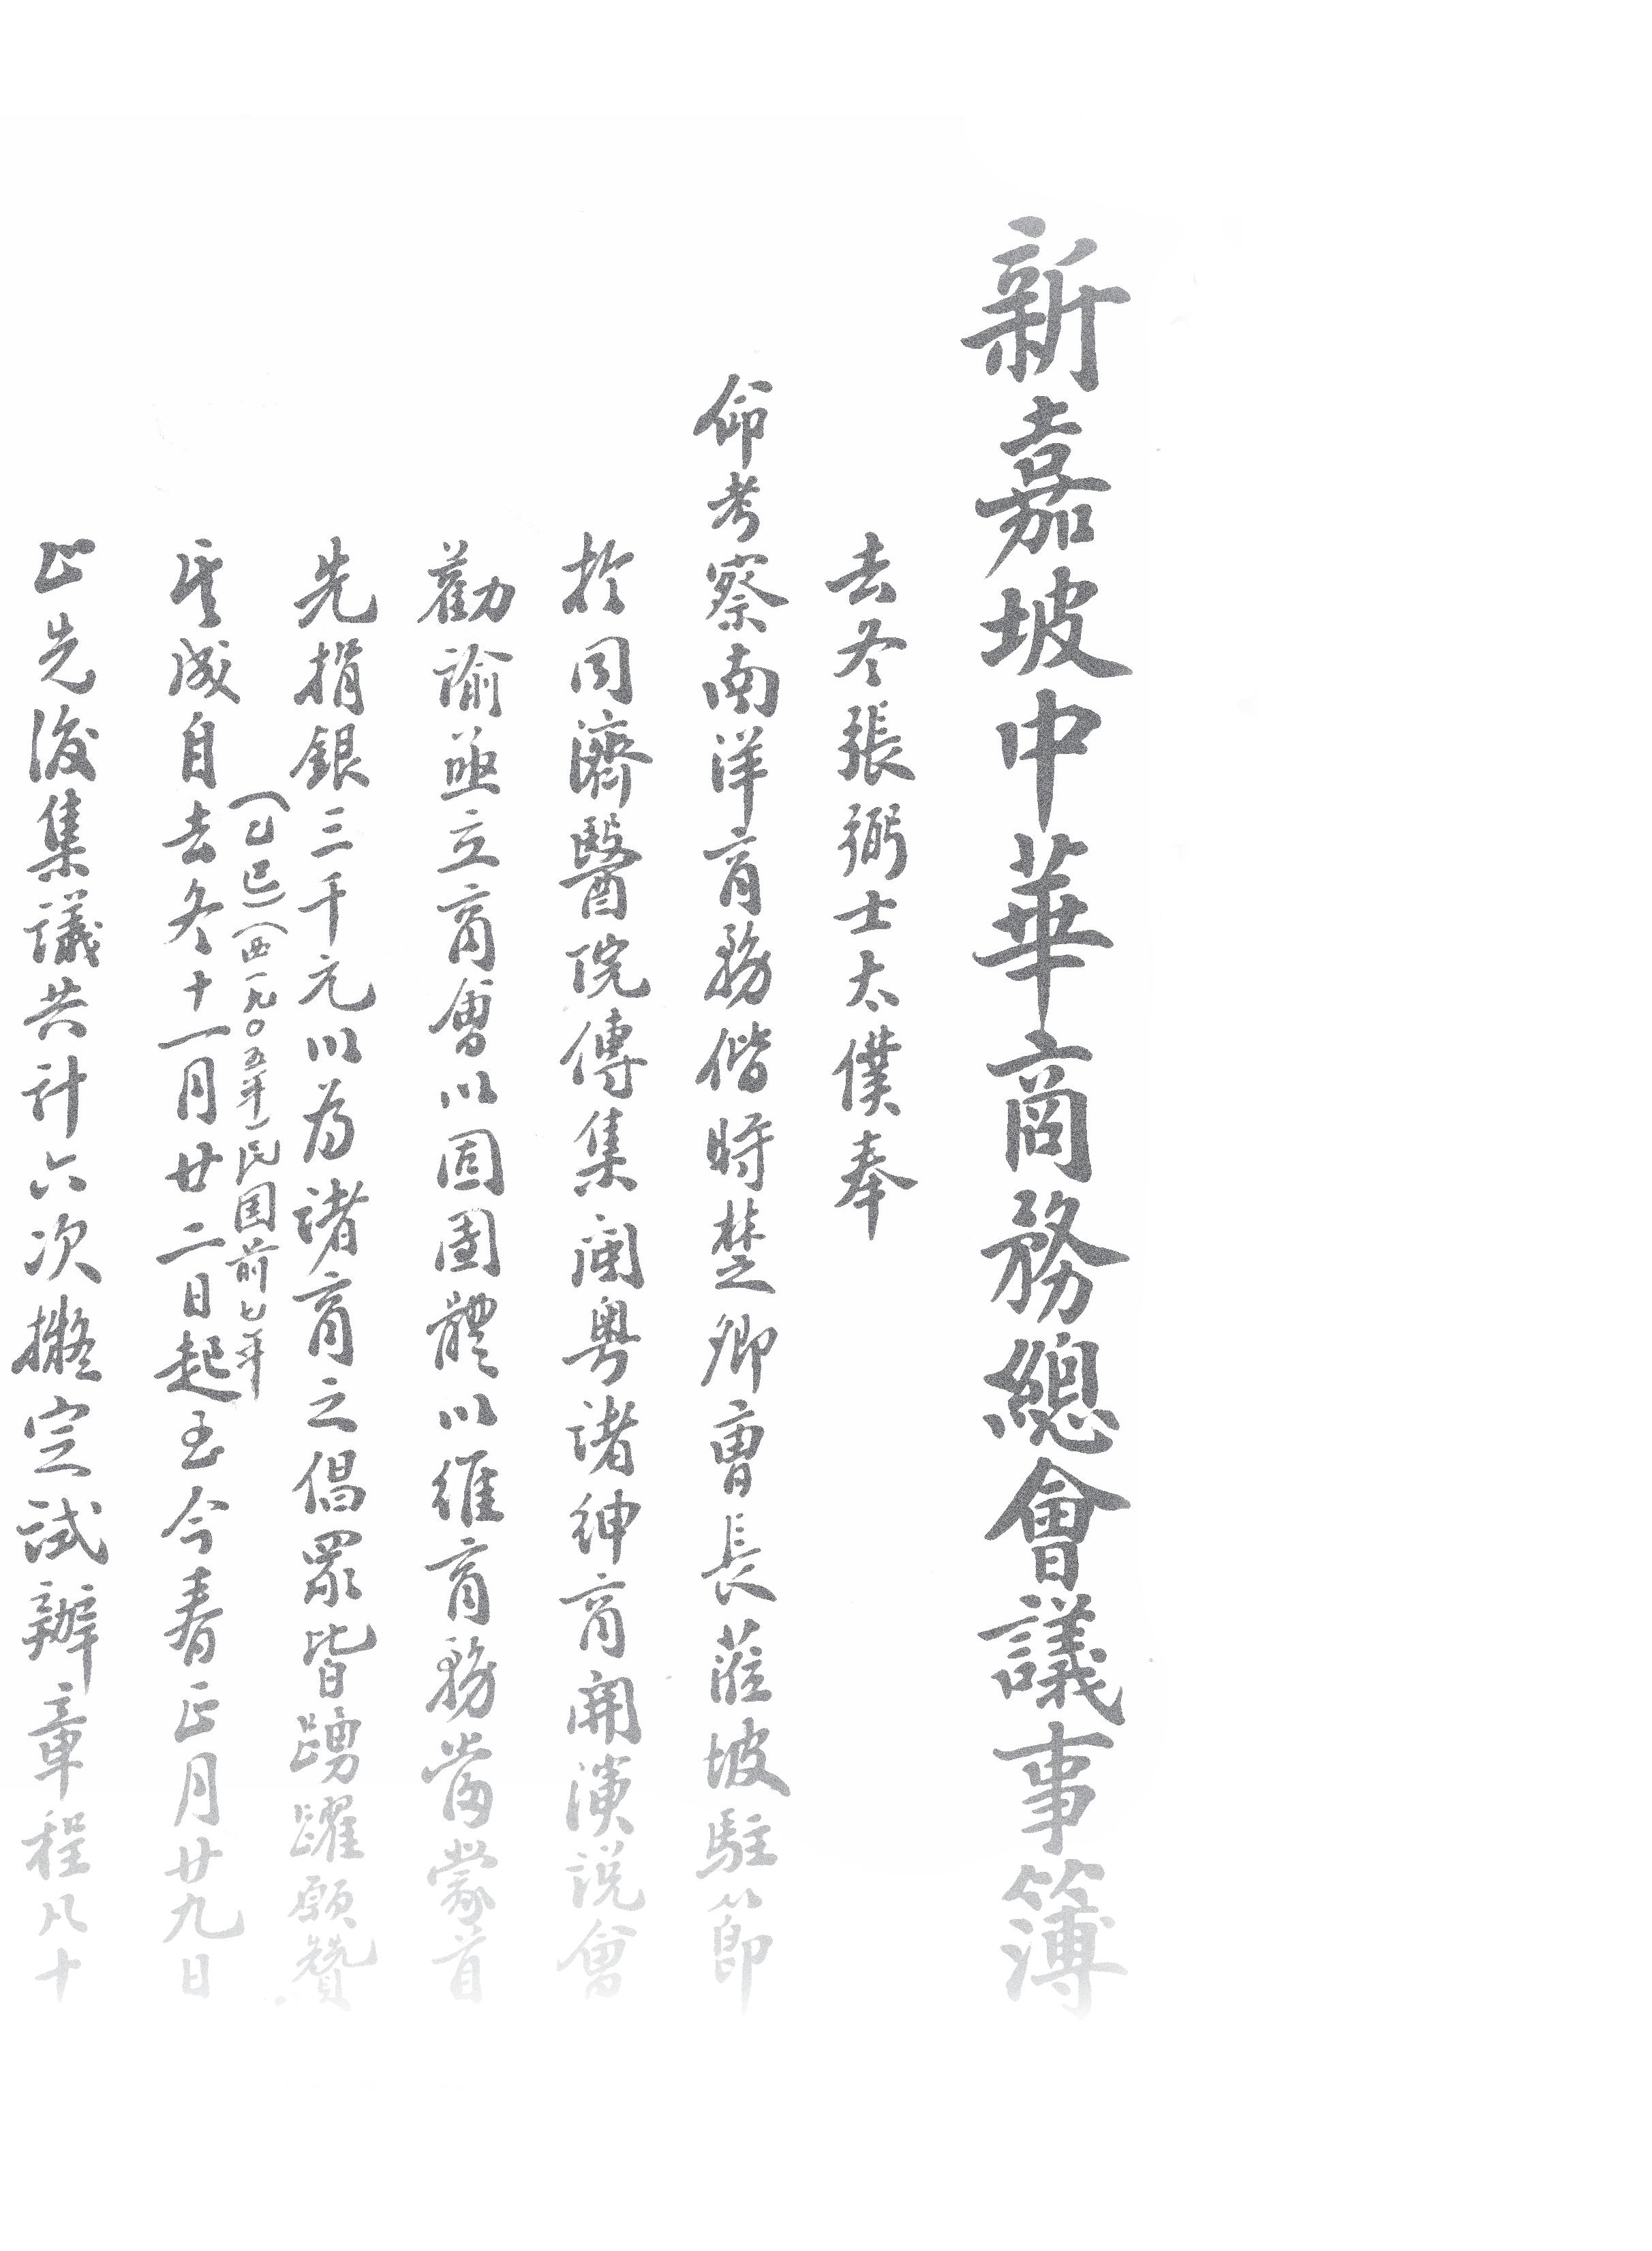 新嘉坡中華商務總會議事簿
去冬張弼士太僕奉
命考察南洋商務偕時楚卿曹長蒞坡駐節
於同濟醫院傳集閩粵諸紳商開演説會
勸諭亟立商會以固團體以維商務當蒙首
先捐銀三千元以為諸商之倡眾皆踴躍願贊
其成自去冬十一月廿二日起至今春正月廿九日
(乙巳)(西一九〇五年)民国前七年
止先後集議共計六次擬定試辦章程凡十